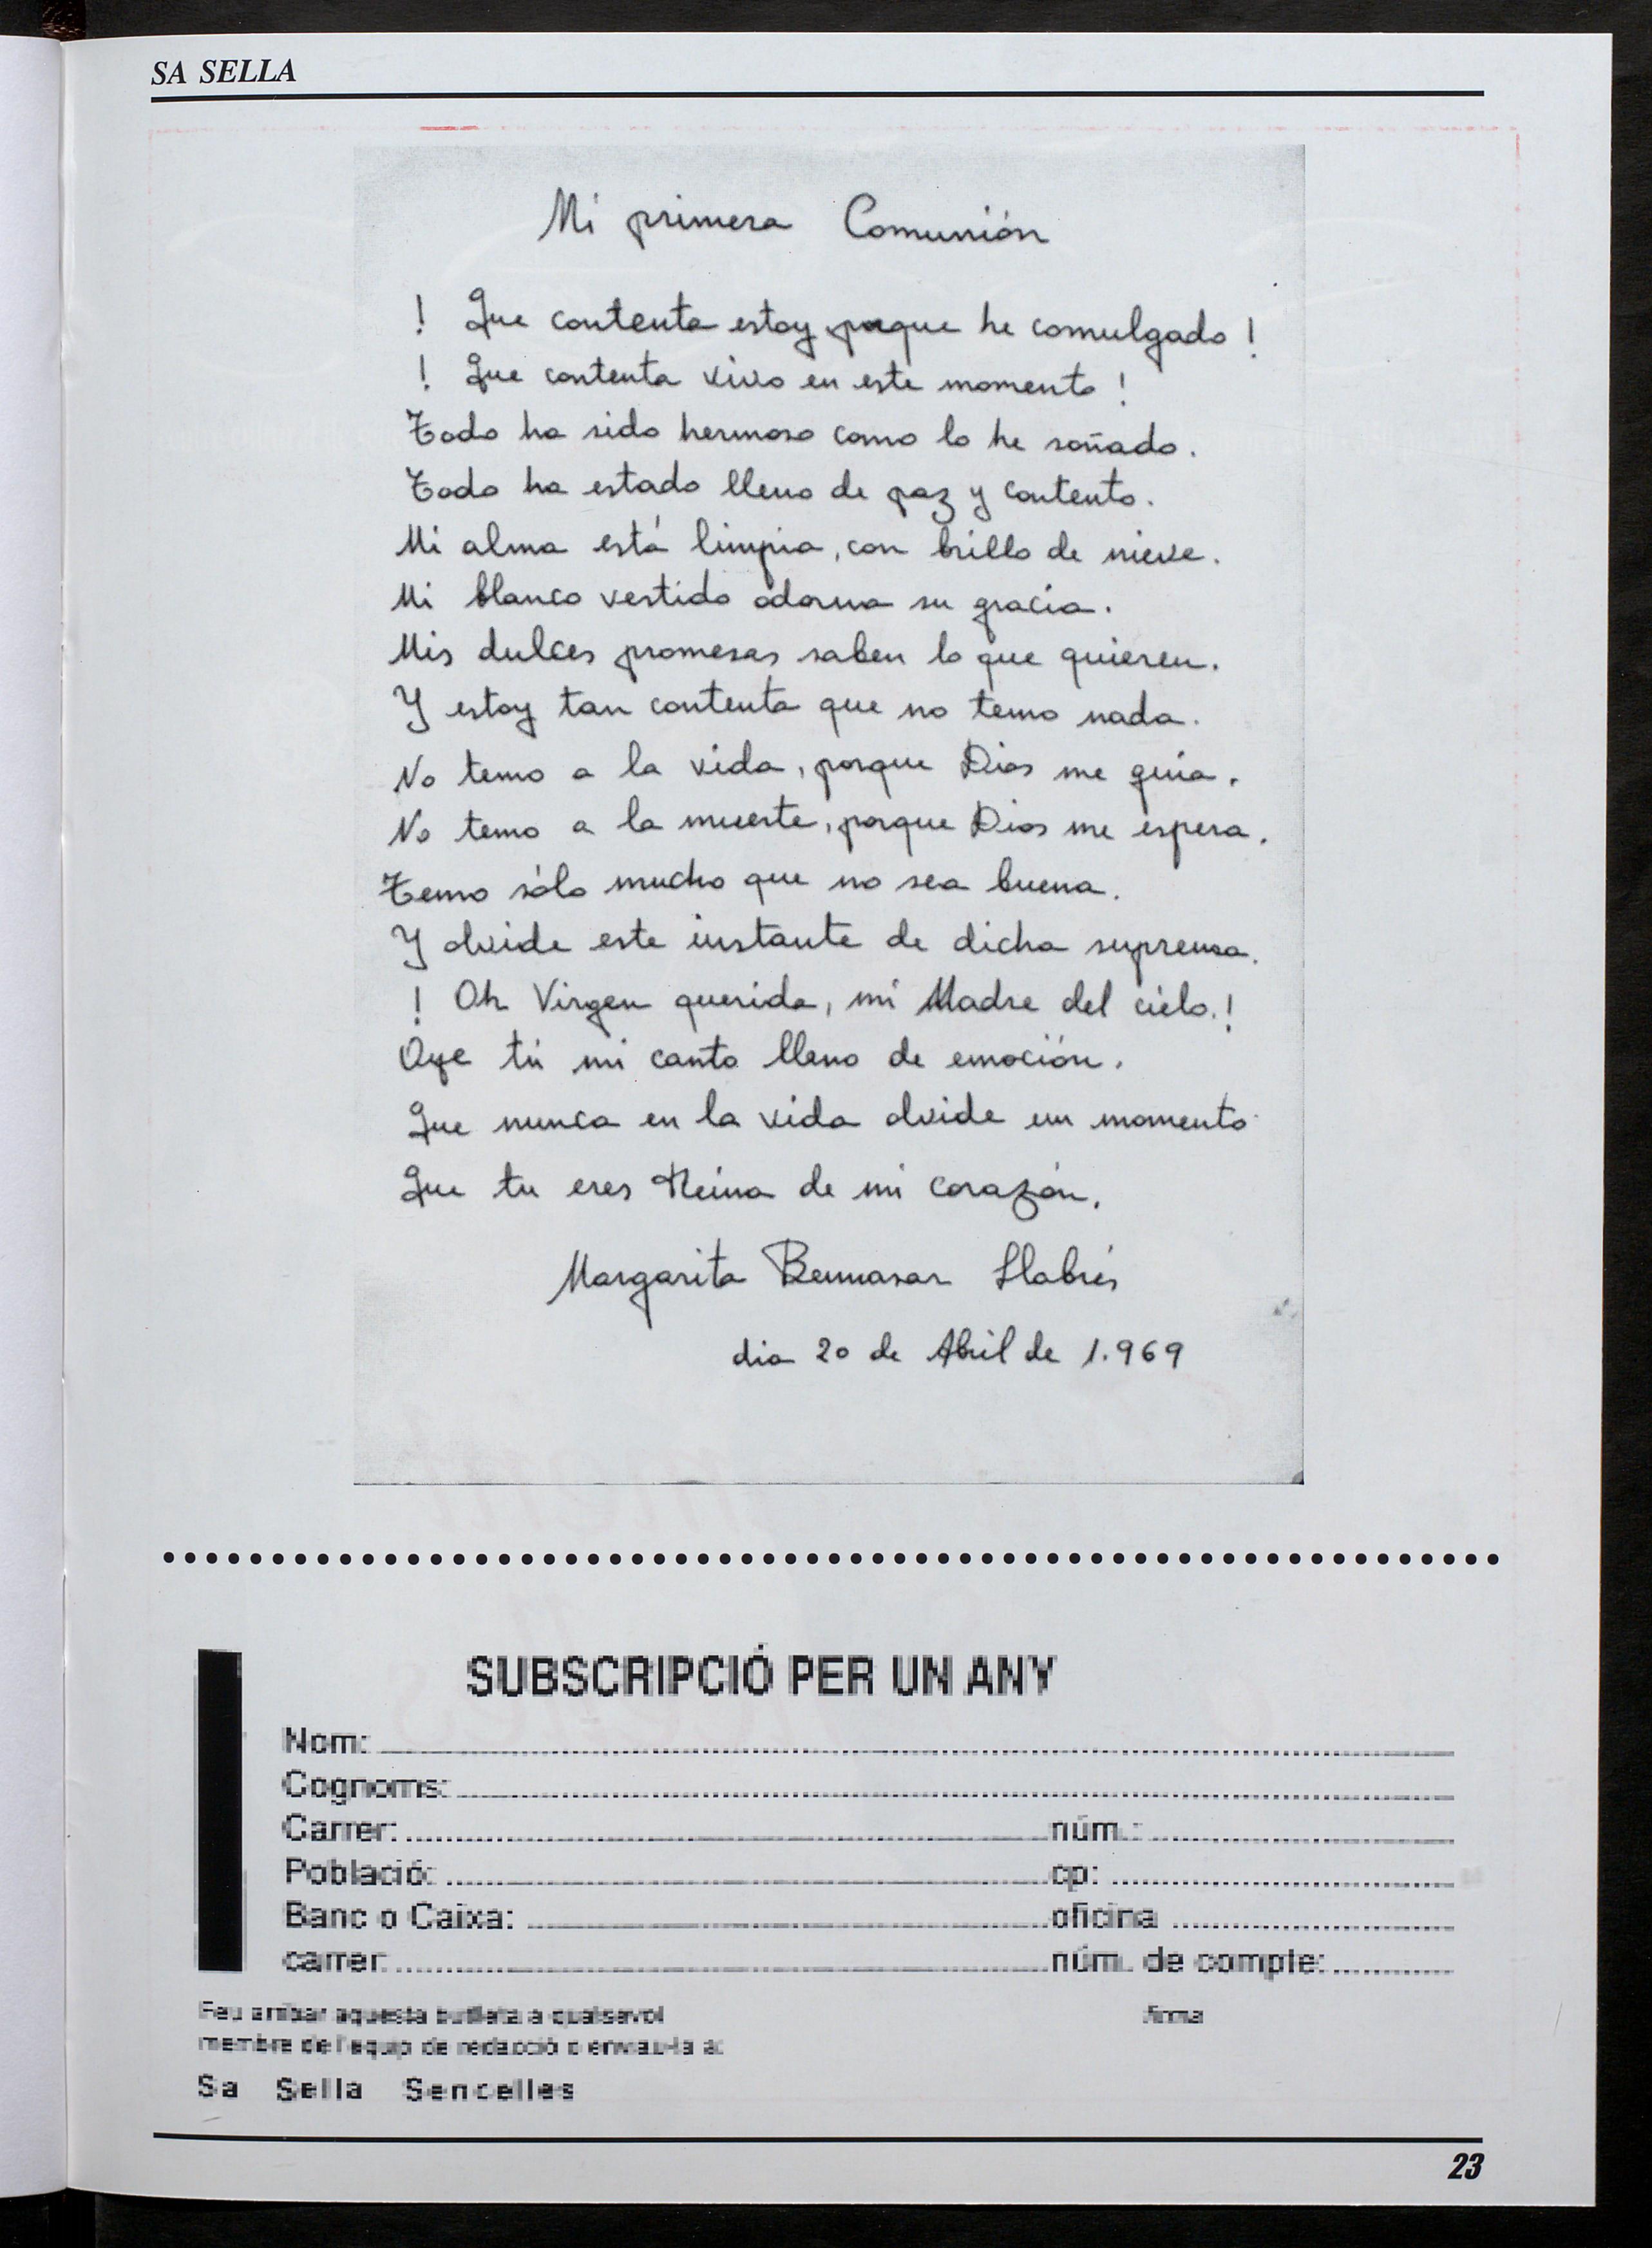 SA SELLA
Mi primera Comunión
! Que contenta estoy porque he comulgado !
! Que contenta vivo en este momento !
Todo ha sido hermoso como lo he soñado.
Todo ha estado lleno de paz y contento.
Mi alma está limpia, con brillo de nieve.
Mi blanco vestido adorna su gracia.
Mis dulces promesas saben lo que quieren.
Y estoy tan contenta que no temo nada.
No temo a la vida, porque Dios me guia.
No temo a la muerte, porque Dios me espera.
Temo sólo mucho que no sea buena.
Y olvide este instante de dicha suprema.
! Oh Virgen querida, mi Madre del cielo.!
Oye tú mi canto lleno de emoción.
Que nunca en la vida olvide un momento
Que tu eres Reina de mi corazón.
Margarita Bennasar Llabrés
dia 20 de Abril de 1.969
SUBSCRIPCIÓ PER UN ANY
Nom:
Cognoms:
Carrer: núm.:
Població: cp:
Banc o Caixa: oficina
carrer: núm. de compte:
Feu arribar aquesta butlleta a qualsevol firma
membre de l'equip de redacció o enviau-la a:
Sa Sella Sencelles
23